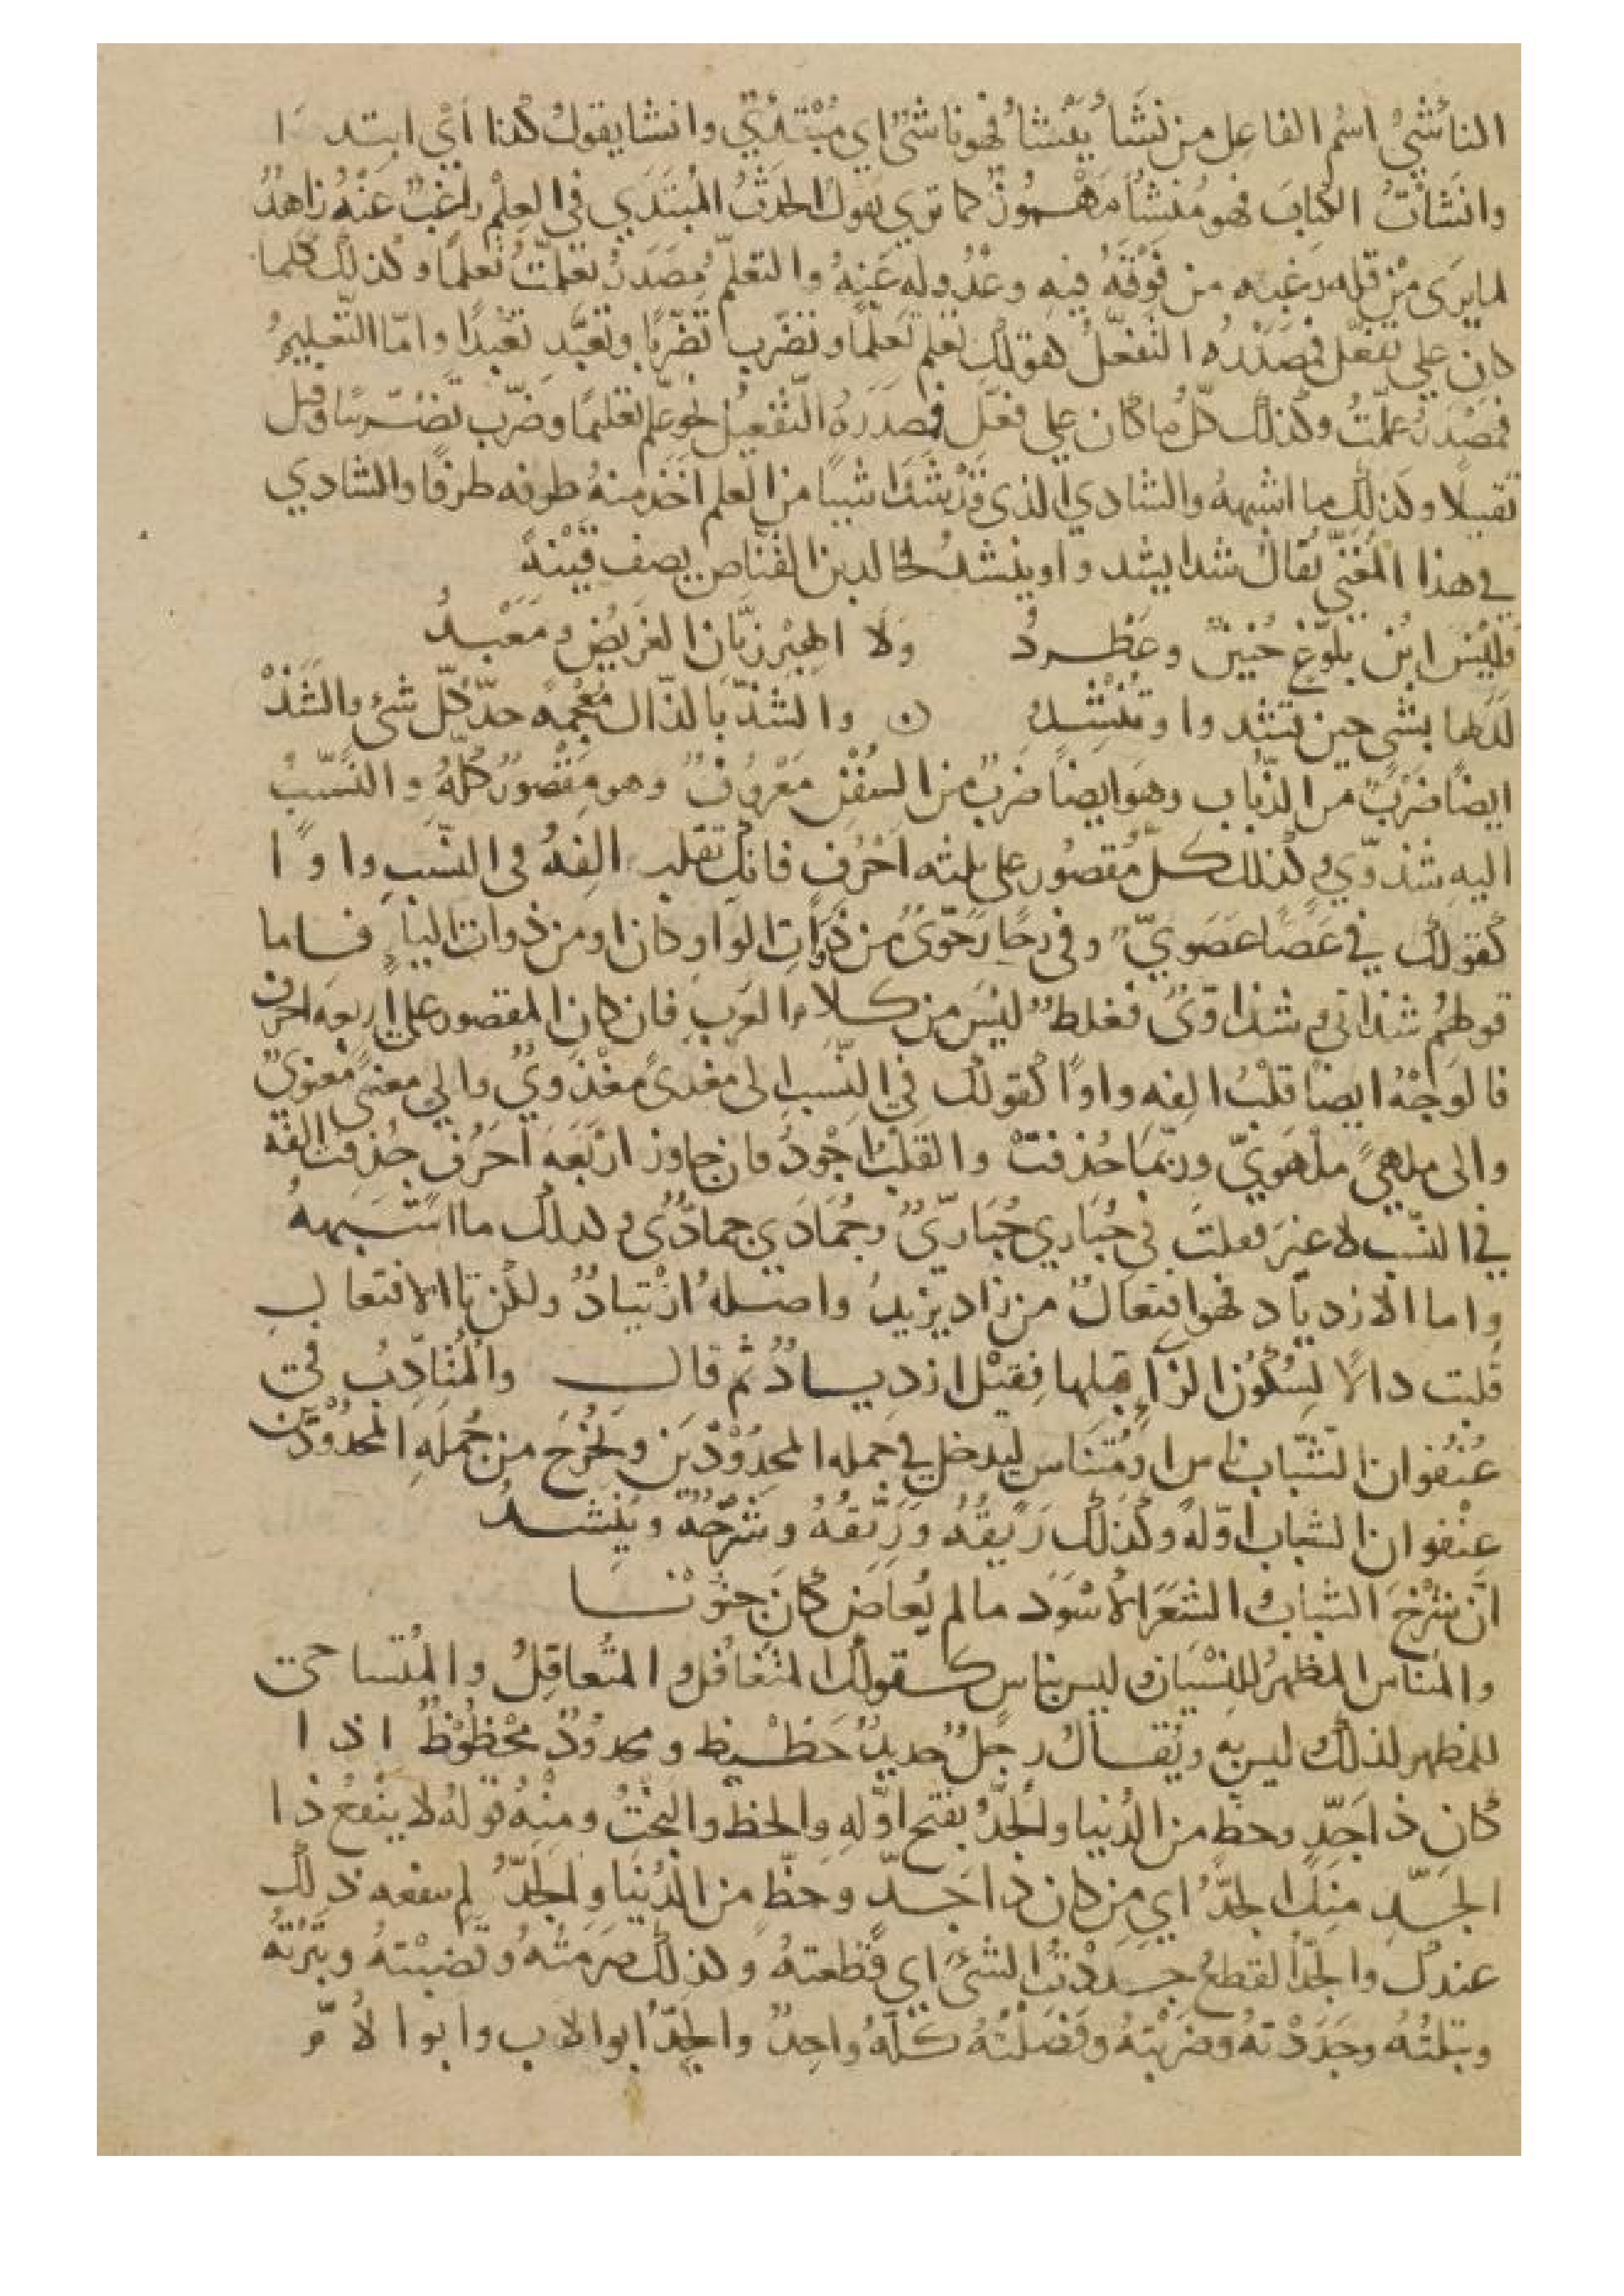 الناشئُ اسْم الفاعِل من نَشَأَ يَنْشَأُ فهو ناشئٌ اي مُبْتَدِئٌ وانشا يقول كذا أيْ ابتدا
وانشَأتُ الكِتابَ فهو مُنشَأٌ مَهْموزٌ كما تري يقول الحَدَثُ المُبتَدي في العِلْم راغبٌ عَنْهُ زاهدٌ
لما يَرَى مِنْ قِله رَغبته من فَوْقَهُ فيهِ وعُدُوله عَنهُ والتعَلّم مَصدَرُ تعَلّمتُ تَعلّمًا وكذلك كلما
كان علي تفعّل فمصَدَرُه التفعّلُ كقولك تعلم تَعلّمًا وتضّرب تضّربًا وتعبَّد تعَبّدًا وامّا التّعْليمُ
فمصْدَرُ علّمتُ وكذلك كلّ ما كان علي فعّل فمصَدَرهُ التّفعِيل نحو علّم تعليمًا وضرّب تضريبًا وقبّل
تقبيلًا وكذلك ما اشبههُ والشادي الذي قدْ شَدَا شييا من العلم اخذ منهُ طرفه طرفًا والشادي
في هذا المُغنّي يُقال شدا يشدوا وينشدُ لخالد بن القنّاص يصف قَيْنَةً
وليْسَ ابن بلوّع حُنينٌ وعَطردُ ولَا الهِبْرِزيّان الغَريض ومَعْبدُ
لَدَيها بشي حين تشدوا وتُنْشِدُ والشذّ بالذّال مُعْجمةً حدّ كلّ شئ والشَذَذْ
ايضًا ضَرْبٌ من الذّباب وهو ايضًا ضربٌ من السُفْن مَعْروفٌ وهو مقْصُورٌ كلّهُ والنَسَبُ
اليه شذوّي وكذلك كلّ مقصُور على ثلثه احْرُف فانك تقلب الفهُ في النّسَب واوًا
كقولك في عَصًا عَصَويّ وفي رحًا رَحَويٌّ من ذوَات الواو كان او من ذوات الياءِ فاما
قولهُم شذاتي وشذاويٌّ فغلطٌ ليسَ من كلام العَرب فان كان المقصور على اربعَه احرف
فالوَجْهُ ايضًا قلْبُ الِفه واوًا كقولك في النّسب الى مغذىً مغْذويٌ والي معنىً معْنويٌ
والى ملهىً ملْهَويّ وربّما حُذفتْ والقلْبُ اجْودُ فان جاوز اربَعَه احرُف حُذفت الفهُ
في النّسب لا غير فعلتَ في حُبَاري حُبَاريٌّ وجُمَادَي جُماديٌّ وكذلك ما اشبهه
واما الازدياد فهو افتعالٌ من زاد يزيدُ واصْلهُ ازْتيادٌ ولكن تا الافتعال
قُلبت دالًا لِسُكُون الزّاءِ قبلها فقيْل ازديادٌ ثم قال والمُتادّبُ في
عُنْفُوان الشّبابِ ناسٍ او مُتَناسٍ ليدخل في جمله المجدُوْديَن ويَخْرُجَ من جُمله المحدُوْدين
عنْفوان الشباب اوّلهُ وكذلك رَيقُهُ ورَيّقُهُ وشرْخهُ وينشدُ
انّ شرْخَ الشبابِ والشَعَرَ الأسْوَدَ ما لم يُعاصَ كانَ جنُونَا
والمتناس المظهرُ للنسْيان وليس بناس كقولك المتغافل والمتعاقلُ والمُتساحي
المظهر لذلك ليس به ويُقال رجلٌ جديدٌ حَظيظ ومجدُودٌ محْظوظٌ اذا
كان ذا جَدّ وحظّ من الدُنيا والجَدّ بفتح اوّلهِ والحظّ والبَخْتُ ومِنْهُ قولهُ لا ينفعُ ذا
الجَدّ مِنكَ الجدُّ اي من كان ذا جَدّ وحظّ من الدُنيا والجَدّ لم ينفعه ذلك
عندك والجدّ القطعُ جددْتُ الشئَ اي قطعتهُ وكذلك صَرمتهُ وقضبْتهُ وبَتَرْتهُ
وبتلتُهُ وجَذَذْتهُ وضرَبْتهُ وفَصَلْتُهُ كلّهُ واحدٌ والجدّ ابو الاب وابوا الأمّ